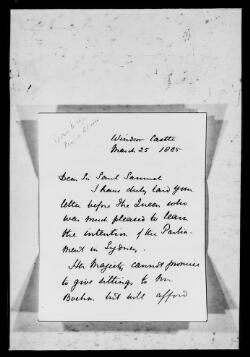 Windsor Castle
March 25 1885
Dear Sir Saul Samuel
I have duly laid your
letter before The Queen who
was much pleased to learn
the intention of the Parlia-
ment in Sydney.
Her Majesty cannot promise
to give sittings to Mr
Boehm but will afford